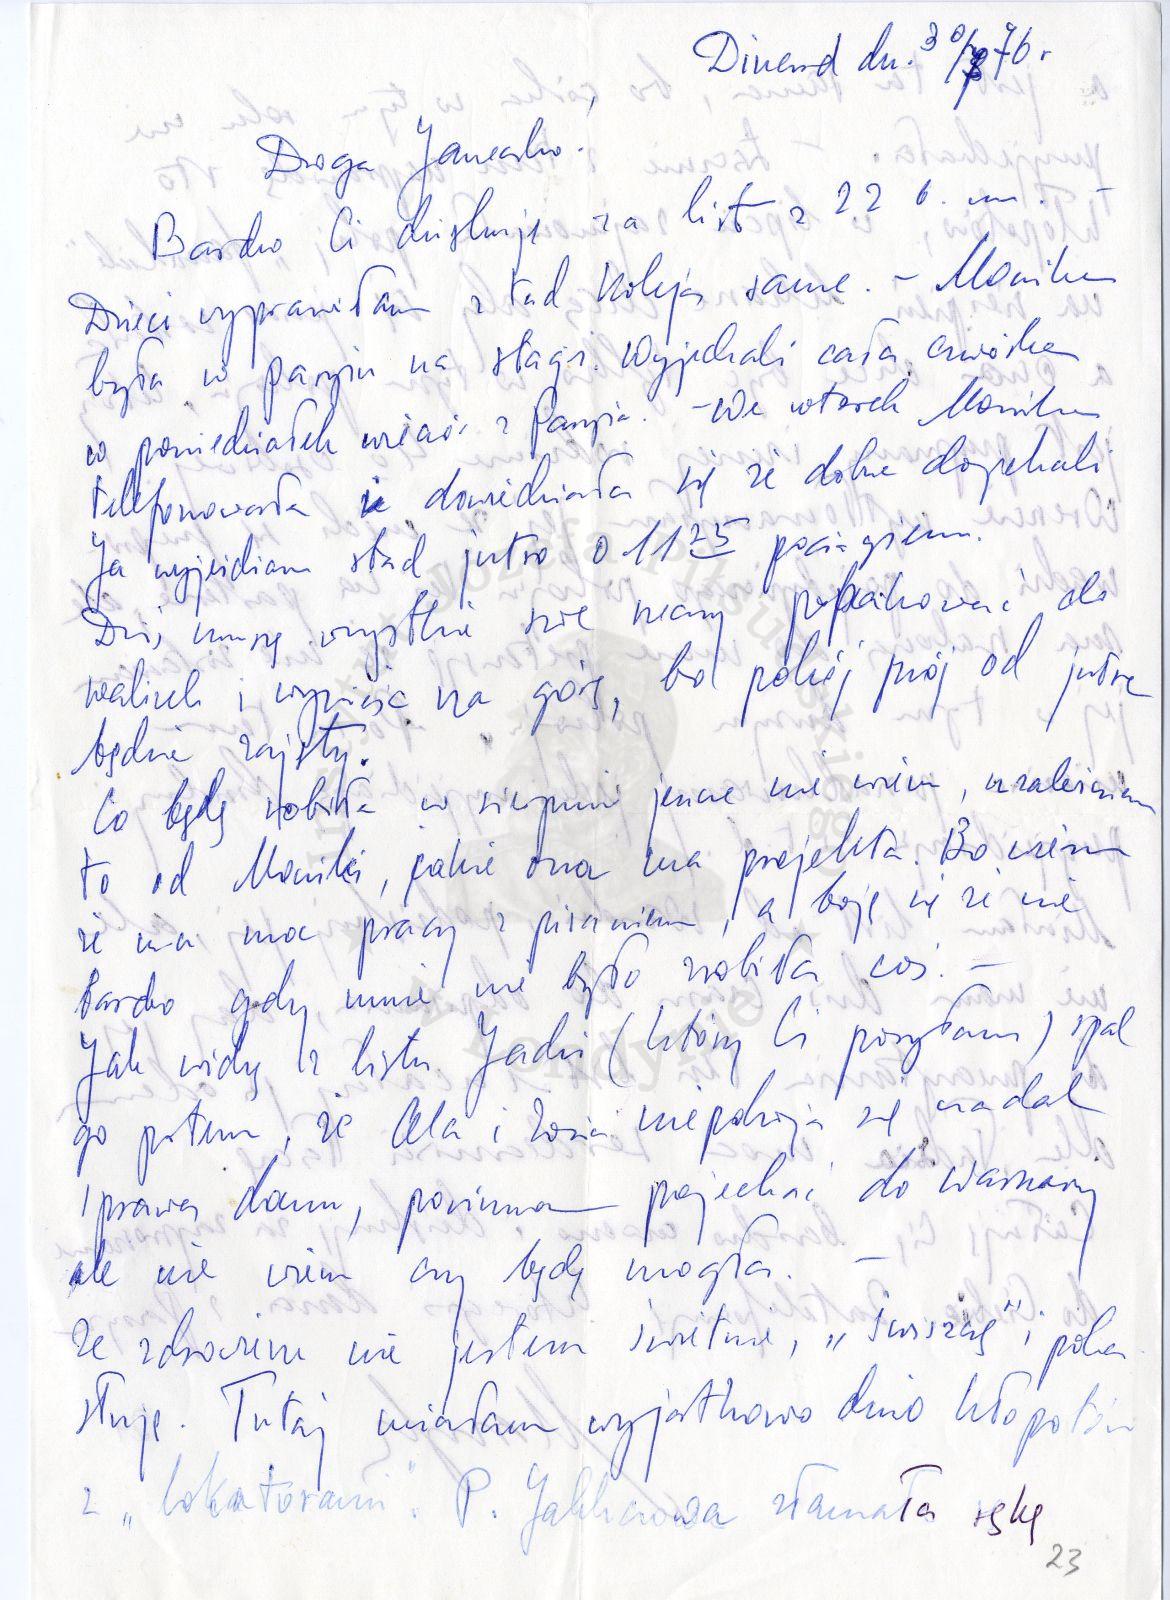 Dinard dn. 30/7 76 r
Droga Janeczko.
Bardzo Ci dziękuję za list z 22 b. m.
Dzieci wyprawiłam z tad koleją same. – Monika
była w Paryżu na stage. Wyjechali całą czwórką
w poniedziałek wieczór z Paryża. – We wtorek Monika
telefonowała i dowiedziała się że dobrze dojechali
Ja wyjeżdżam stąd jutro o 11 25 pociągiem.
Dziś muszę wszystkie swe rzeczy popakować do
walizek i wynieść na górę, bo pokój mój od jutra
będzie zajęty.
Co będę robiła w sierpniu jeszcze nie wiem, uzależniam
to od Moniki, jakie ona ma projekta. Bo wiem
że ma moc pracy z pisaniem, a boję się że nie
bardzo gdy mnie nie było zrobiła coś. –
Jak widzę z listu Jadzi (który Ci posyłam) spal
go potem, że Ola i Zosia niepokoją się nadal
sprawą domu, powinnam pojechać do Warszawy
ale nie wiem czy będę mogła. –
Ze zdrowiem nie jestem świetnie, „świszczę" i poka
słuję. Tutaj miałam wyjątkowo dużo kłopotów
z „lokatorami". P. złamała rękę
23